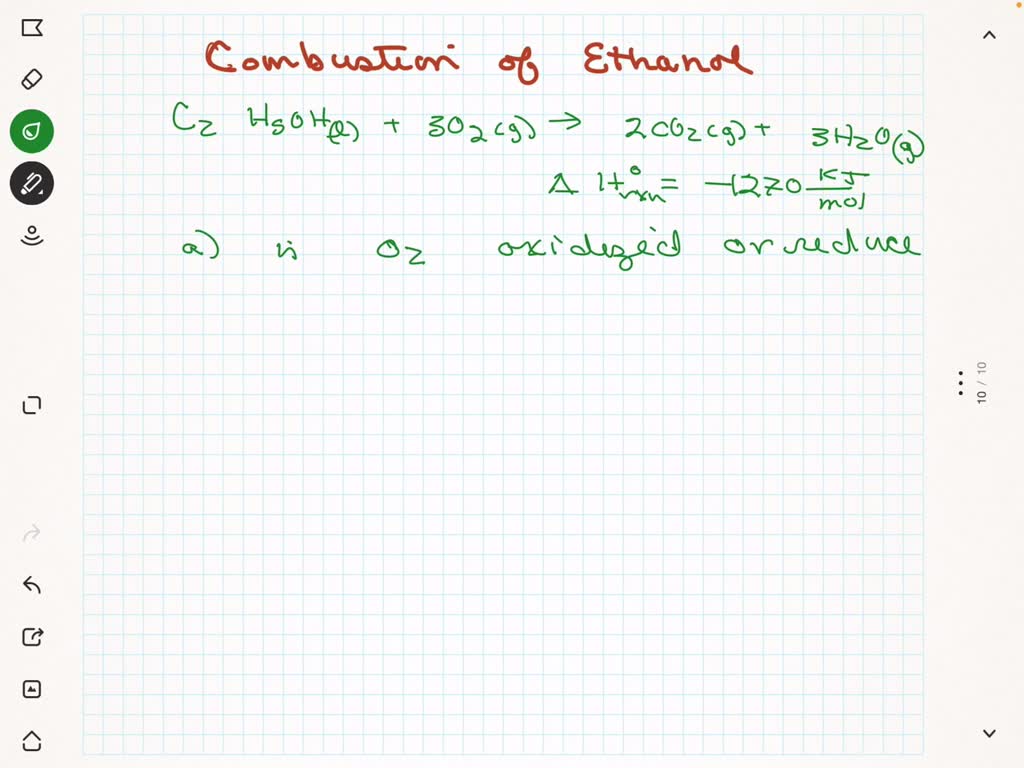 Combustion of Ethanol
C2 H5OH(l) + 3O2(g) → 2CO2(g) + 3H2O(g)
ΔH°rxn = -1270 KJ/mol
a) is O2 oxidized or reduce
10 / 10